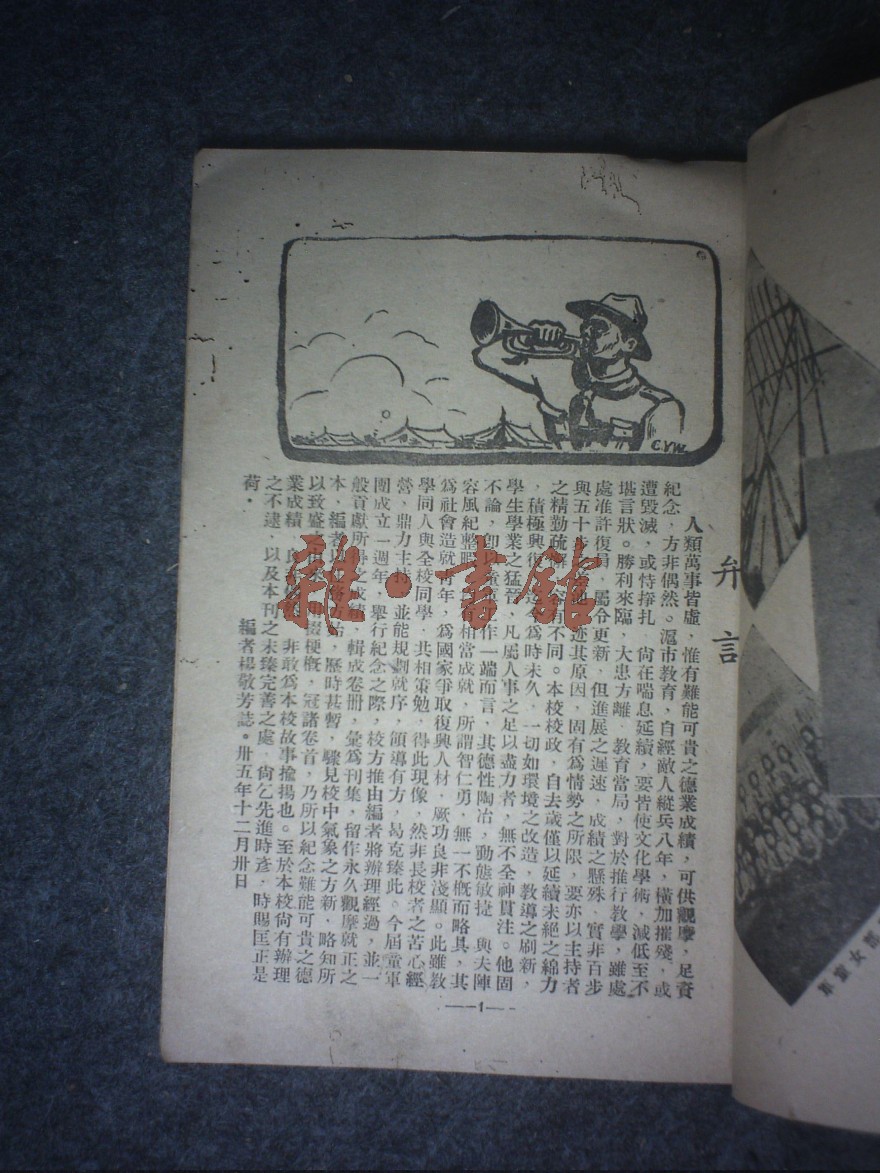 弁言
人類萬事皆虛，惟有難能可貴之德業成績，可供觀摩，足資
紀念，方非偶然。滬市教育，自經敵人縱兵八年，橫加摧殘，或
遭毀滅，或恃掙扎，尙在喘息延續，要皆使文化學術，減低至不
堪言狀。勝利來臨，大患方離，教育當局，對於推行教學，雖處
處准許復員，屬令更新，但進展之遲速，成績之懸殊，實非百步
與五十步 迹其原因，固有爲情勢之所限，要亦以主持者
之精勤疏懈 有不同。本校校政，自去歲僅以延續未絕之綿力
，積極興復 爲時未久，一切如環境之改造，教導之刷新，
學生學業之猛晉，凡屬人事之足以盡力者，無不全神貫注。他固
不論，卽以童軍 作一端而言，其德性陶冶，動態敏捷，與夫陣
容風紀整 相當成就，所謂智仁勇，無一不概而略具，其
爲社會造就靑年，爲國家爭取復興人材，厥功良非淺顯。此雖教
學同人與全校同學，共相策勉，得此現像，然非長校者之苦心經
營，鼎力主持，並能規劃就序，領導有方，曷克臻此。今屆童軍
團成立一週年，舉行紀念之際，校方推由編者將辦理經過，並一
般貢獻所得之成績，輯成卷册，彙爲刊集，留作永久觀摩就正之
本，編者以 ，歷時甚暫，驟見校中氣象之方新，略知所
以致盛之由來 掇梗概，冠諸卷首，乃所以紀念難能可貴之德
業成績， 非敢爲本校故事揄揚也。至於本校尙有辦理
之不逮，以及本刊之未臻完善之處，尙乞先進時彥，時賜匡正是
荷。
編者楊敬芳誌。卅五年十二月卅日
—1—
C.Y.W.
雜·書館